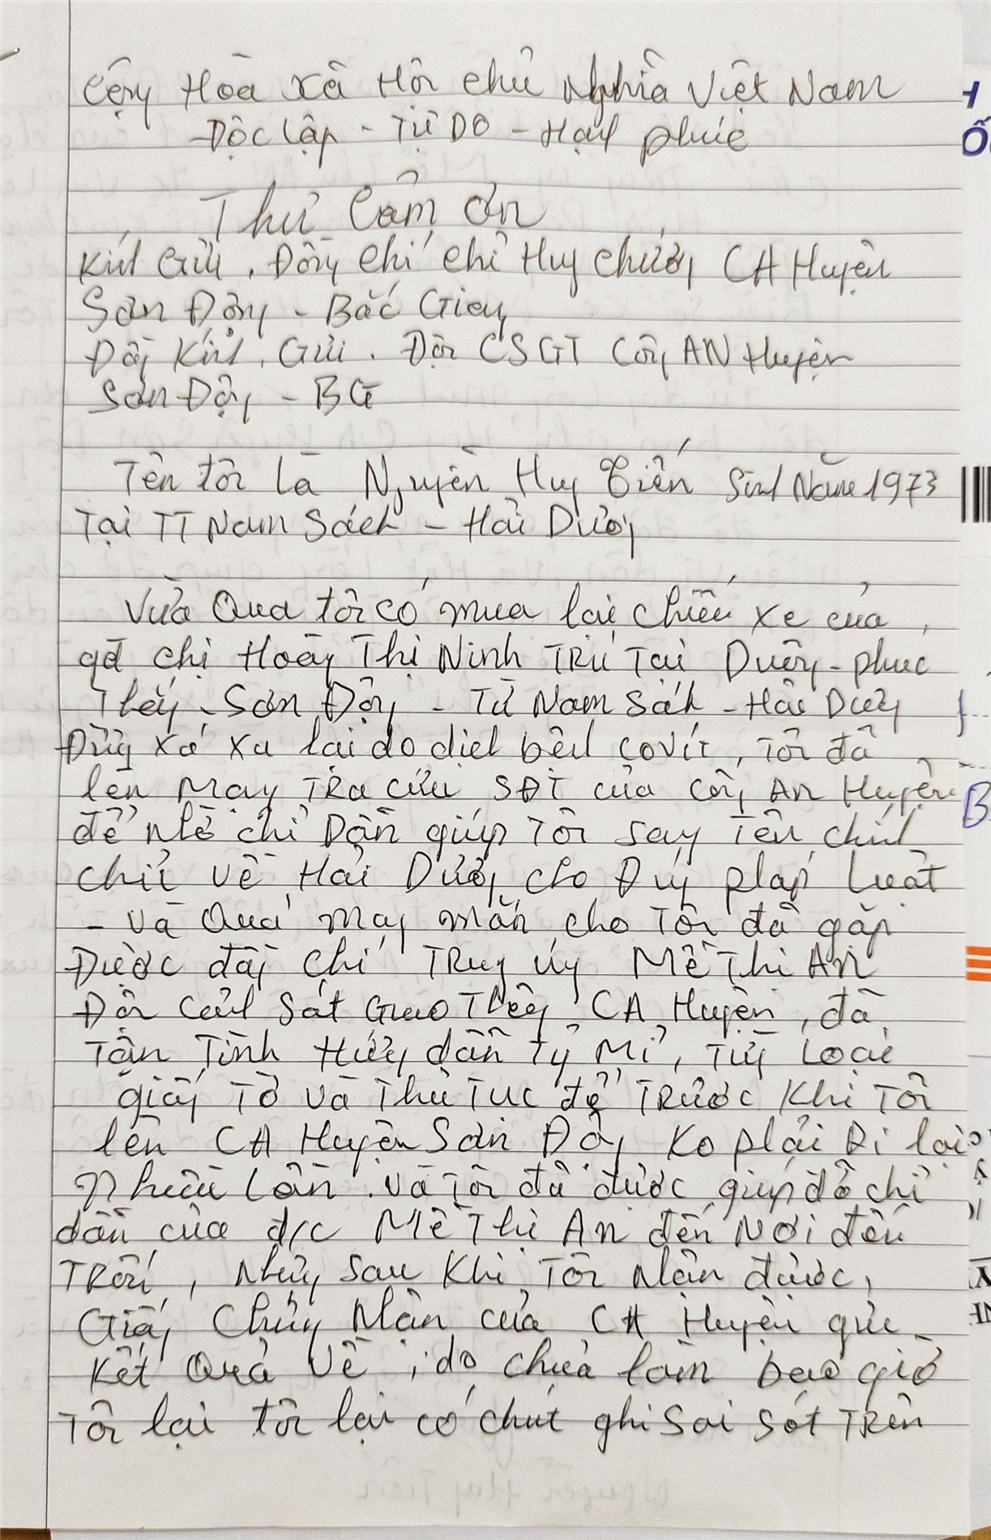 Cộng Hòa Xã Hội chủ Nghĩa Việt Nam
Độc lập - Tự Do - Hạnh phúc
Thư Cảm ơn
Kính Gửi, Đồng chí chỉ Huy trưởng CA Huyện
Sơn Động - Bắc Giang
Đồng Kính, Gửi. Đội CSGT Công AN Huyện
Sơn Động - BG
Tên tôi là Nguyễn Huy Tiến Sinh Năm 1973
Tại TT Nam Sách - Hải Dương
Vừa Qua tôi có mua lại chiếc xe của
gđ chị Hoàng Thị Ninh TRú Tại Dương - phuc
Thắng - Sơn Động - Từ Nam Sách - Hải Dương
Đường xá xa lại do dịch bệnh covit, Tôi đã
lên Mạng TRa cứu SĐT của Công An Huyện
để nhờ chỉ Dẫn giúp Tôi sang Tên chính
chủ về Hải Dương cho Đúng pháp Luật
- Và Quá may mắn cho Tôi đã gặp
Được đồng chí TRung úy Mè Thị AN
Đội Cảnh Sát Giao Thông CA Huyện, đã
Tận Tình Hướng dẫn Tỷ Mỉ, Từng Loại
giấy Tờ Và Thủ Tục để TRước Khi Tôi
lên CA Huyện Sơn Động Ko phải Đi lại
Nhiều Lần. Và Tôi đã được giúp đỡ chỉ
dẫn của đ/c Mè Thị An đến Nơi đến
TRốn, Nhưng Sau Khi Tôi Nhận được,
Giấy Chứng Nhận của CA Huyện gửi
Kết Quả Về, do chưa làm bao giờ
Tôi lại tôi lại có chút ghi Sai Sót TRên